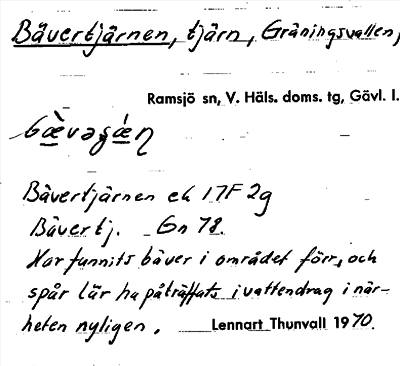 Bävertjärnen, tjärn, Gräningsvallen,
Ramsjö sn, V. Häls. doms. tg, Gävl. l.
Bävertjärnen ek 17F 2g
Bävertj. Gn 78.
Har funnits bäver i området förr, och
spår lär ha påträffats i vattendrag i när-
heten nyligen.
Lennart Thunvall 1970.